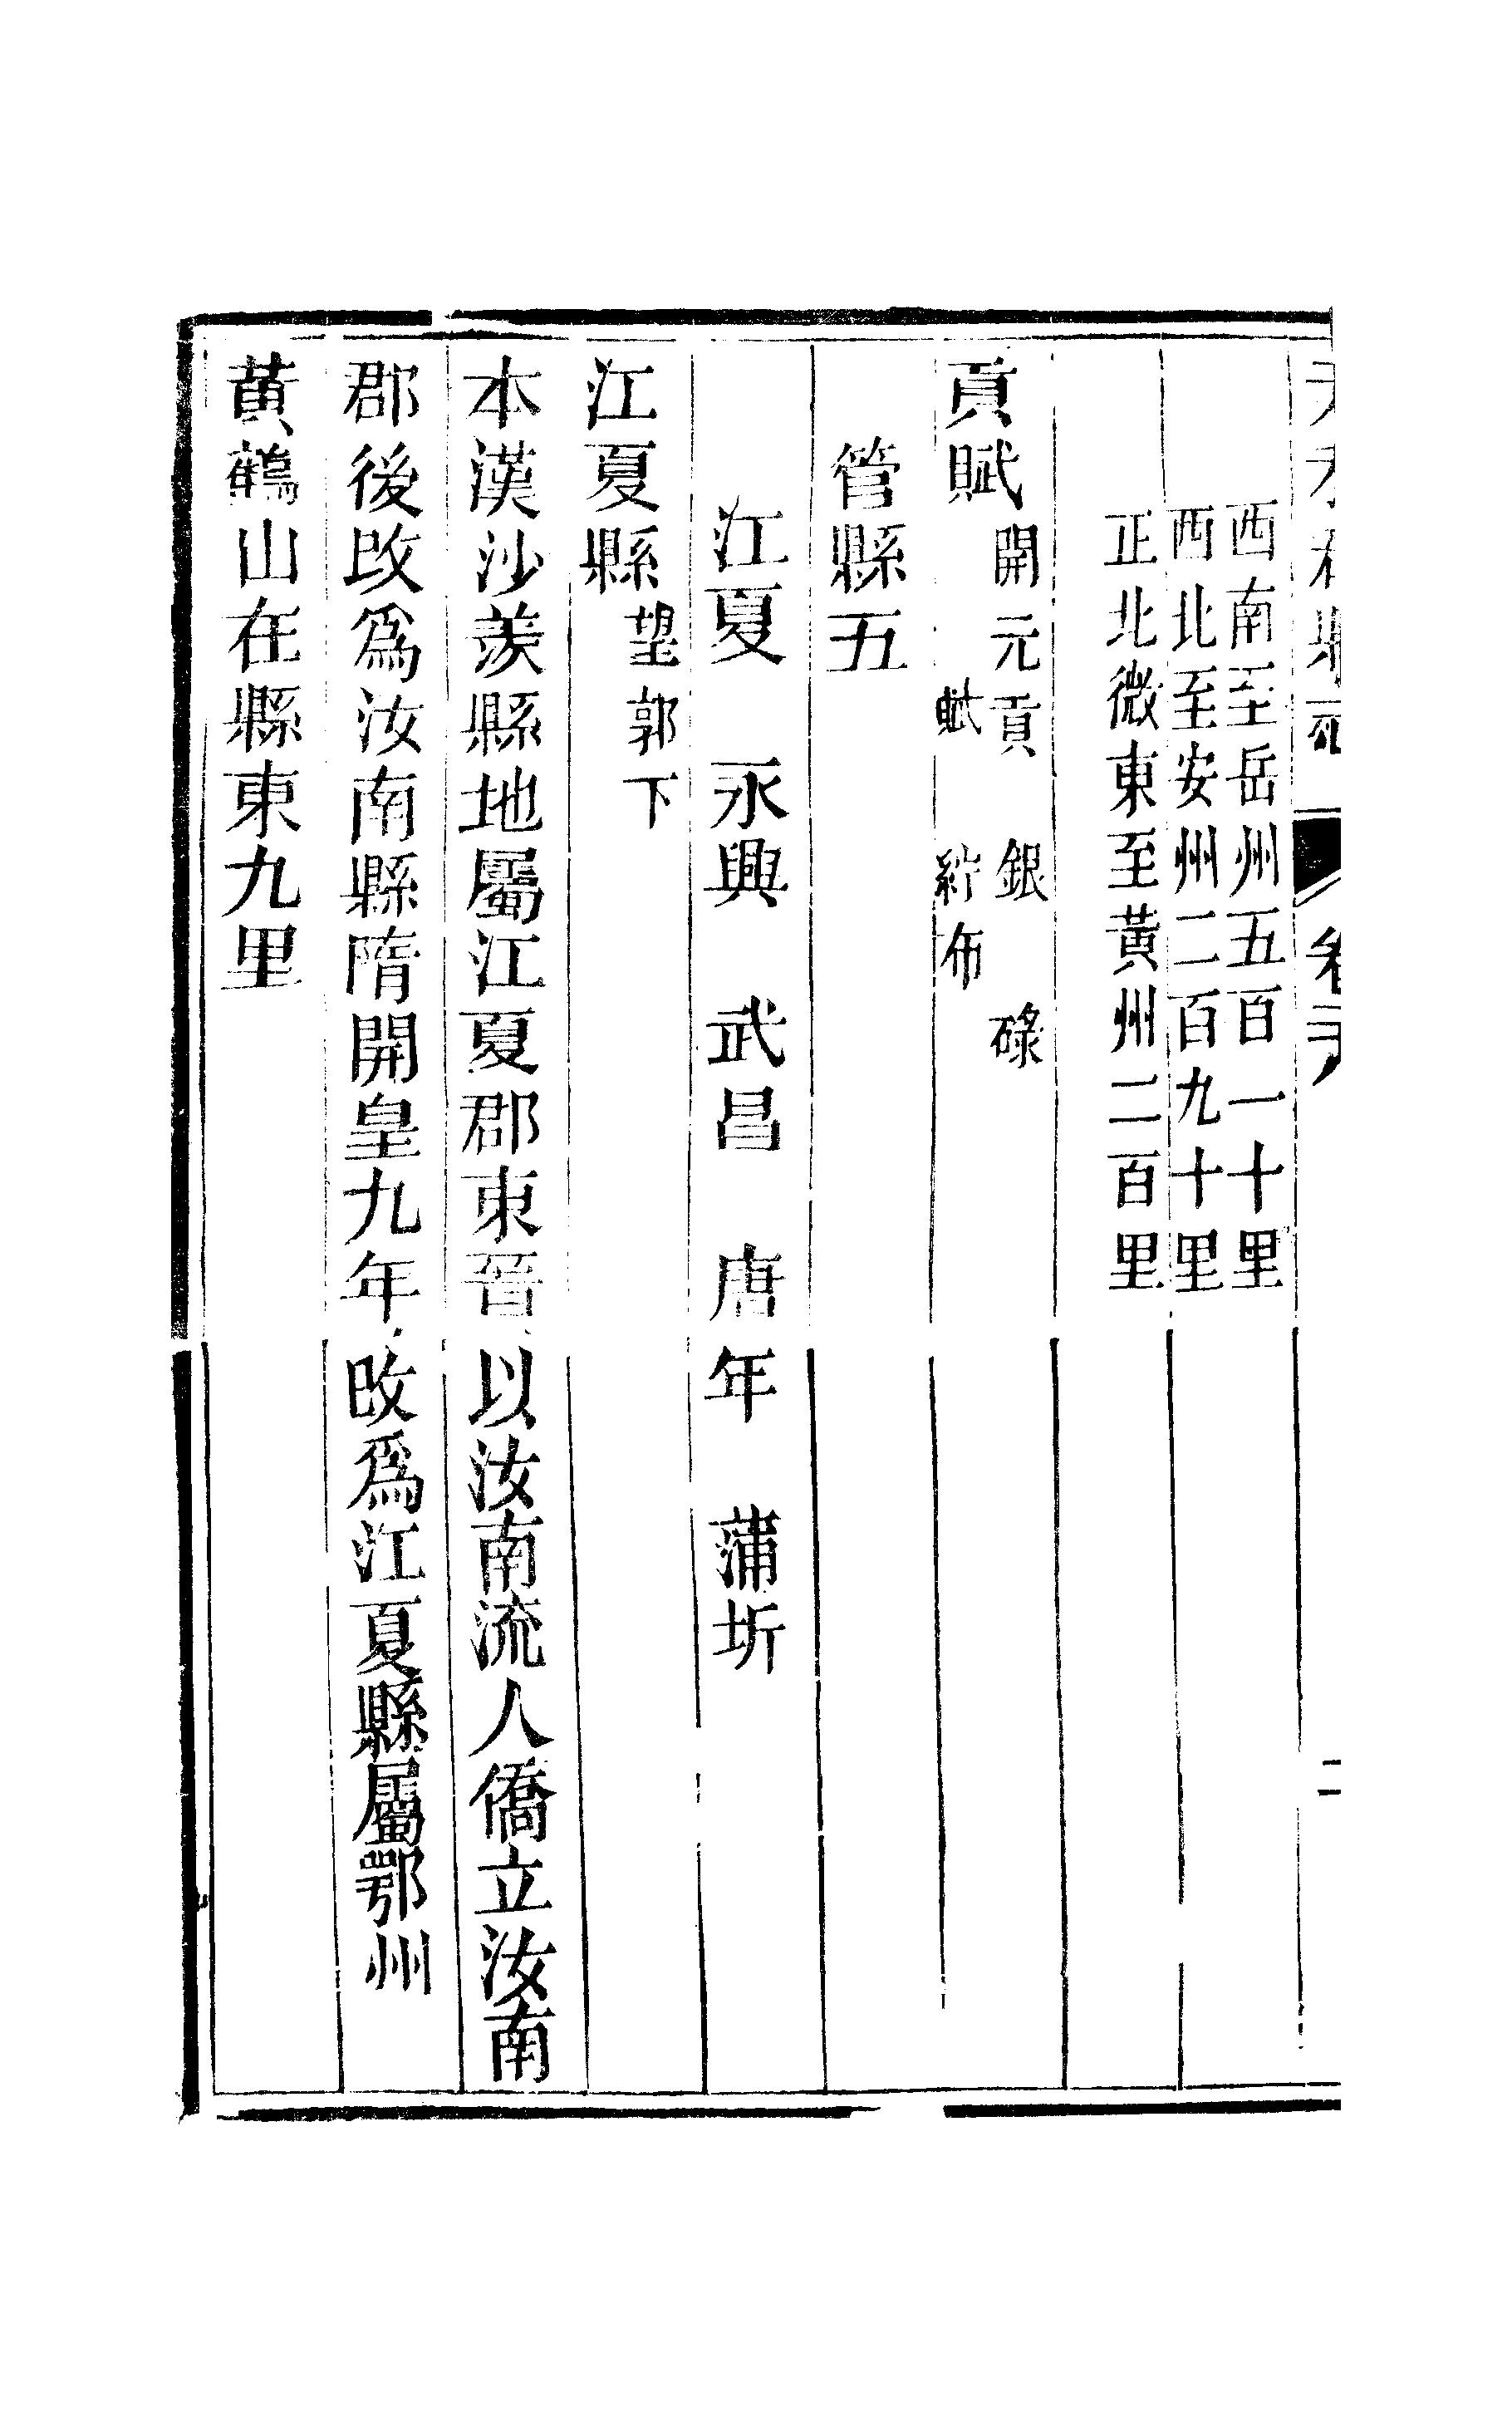 西南至岳州五百一十里
西北至安州二百九十里
正北微東至黃州二百里
貢賦開元貢　銀　碌
賦　紵布
管縣五
江夏　永興　武昌　唐年　蒲圻
江夏縣望郭下
本漢沙羨縣地屬江夏郡東晉以汝南流人僑立汝南
郡後改爲汝南縣隋開皇九年改爲江夏縣屬鄂州
黃鶴山在縣東九里